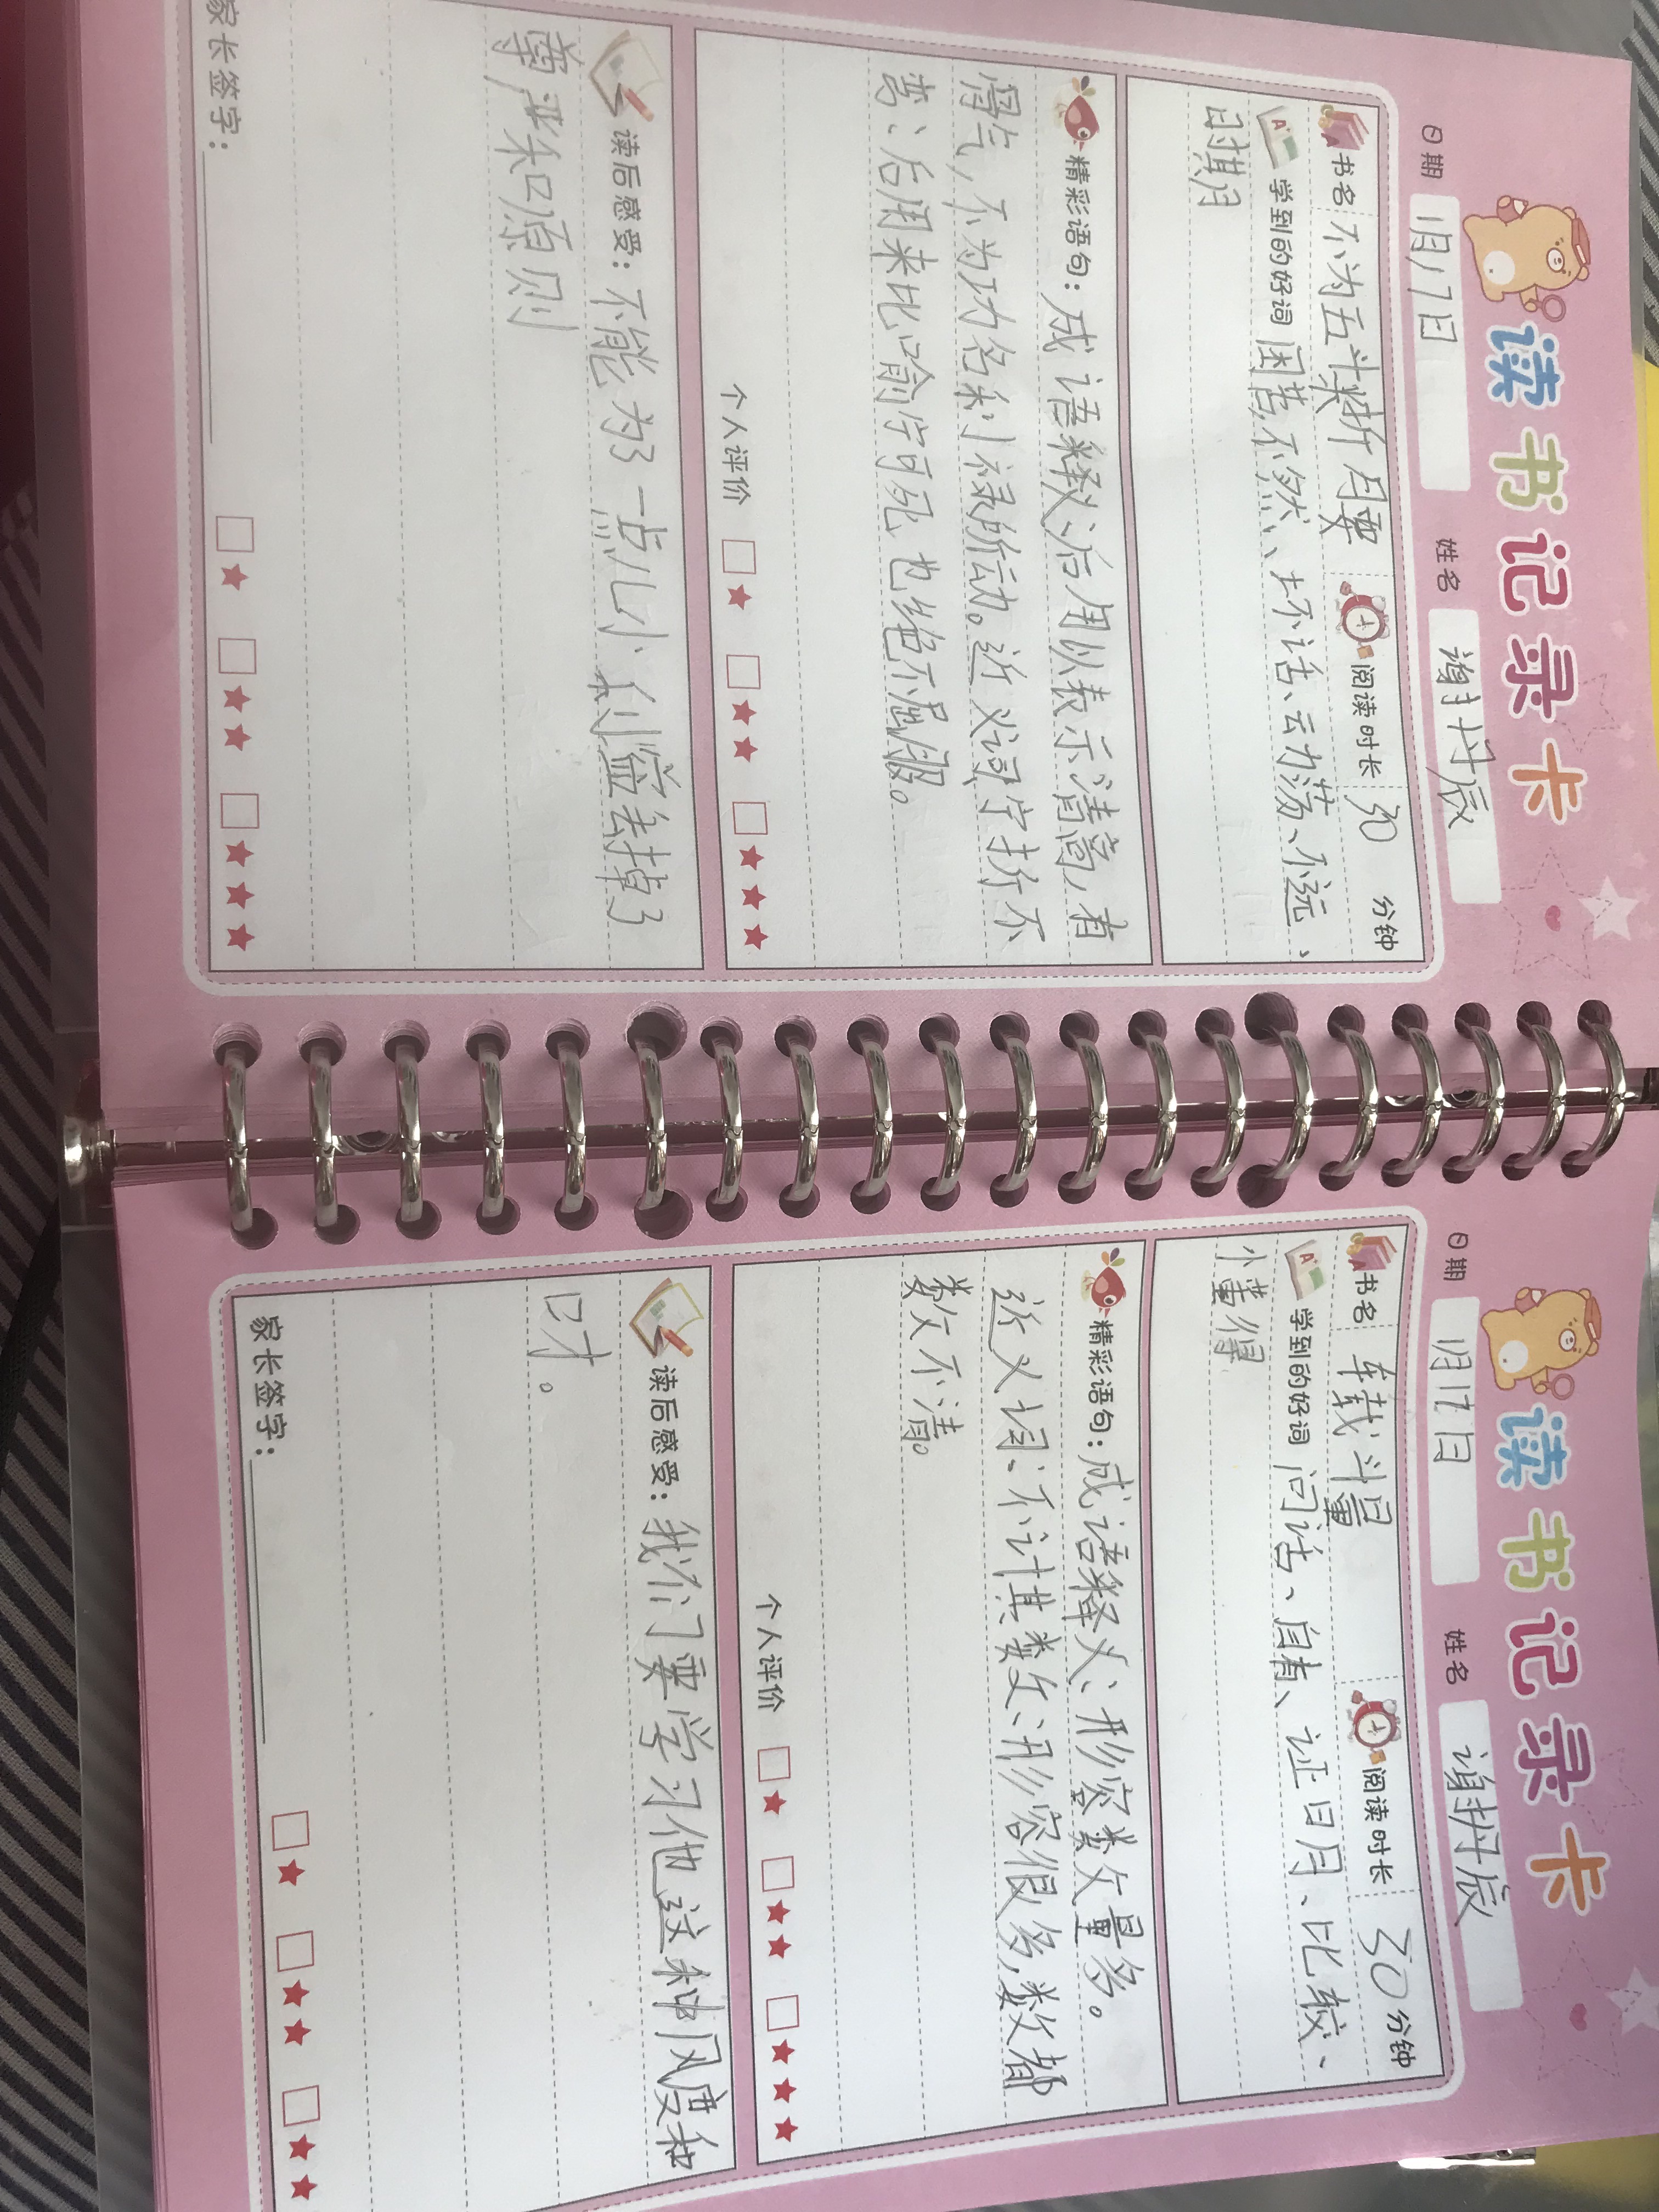 读书记录卡
日期 1月17日 姓名 谢丹辰
书名 不为五斗米折腰 阅读时长 30 分钟
学到的好词 困苦、不然、坏话、云力荡、不远、
时期
精彩语句：成语释义：后用以表示清高，有
骨气，不为功名利禄所动。近义词：宁折不
弯：后用来比喻宁可死也绝不屈服。
个人评价 □★ □★★ □★★★
读后感受：不能为了一点儿小利益去掉了
尊严和原则
家长签字： □★ □★★ □★★★
读书记录卡
日期 1月17日 姓名 谢丹辰
书名 车载斗量 阅读时长 30 分钟
学到的好词 问话、自有、证日月、比较、
小懂得
精彩语句：成语释义：形容数量多。
近义词：不计其数：形容很多，数都
数不清。
个人评价 □★ □★★ □★★★
读后感受：我们要学习他这种风度和
口才。
家长签字： □★ □★★ □★★